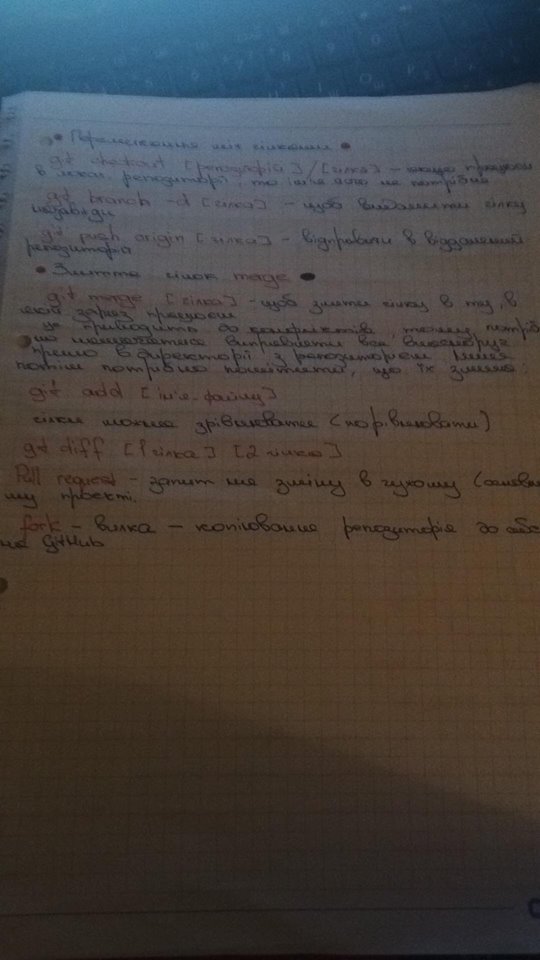 • Переключення між гілками •
git checkout [репозиторія] / [гілка] - якщо працюєш
в локал. репозиторії, то ім'я його не потрібне
git branch -d [гілка] - щоб видалити гілку
назавжди
git push origin [гілка] - відправити в віддалений
репозиторій
• Злиття гілок merge •
git merge [гілка] - щоб злити гілку в ту, в
якій зараз працюєш
це приводить до конфліктів, тому потрібно
виправляти все вручну
прямо в директорії з репозиторієм
потім потрібно помітити, що їх змінено:
git add [ім'я_файлу]
гілки можна зрівнювати (порівнювати)
git diff [1 гілка] [2 гілка]
Pull request - запит на зміну в чужому
му проєкті.
fork - вилка - копіювання репозиторія до себе
на GitHub